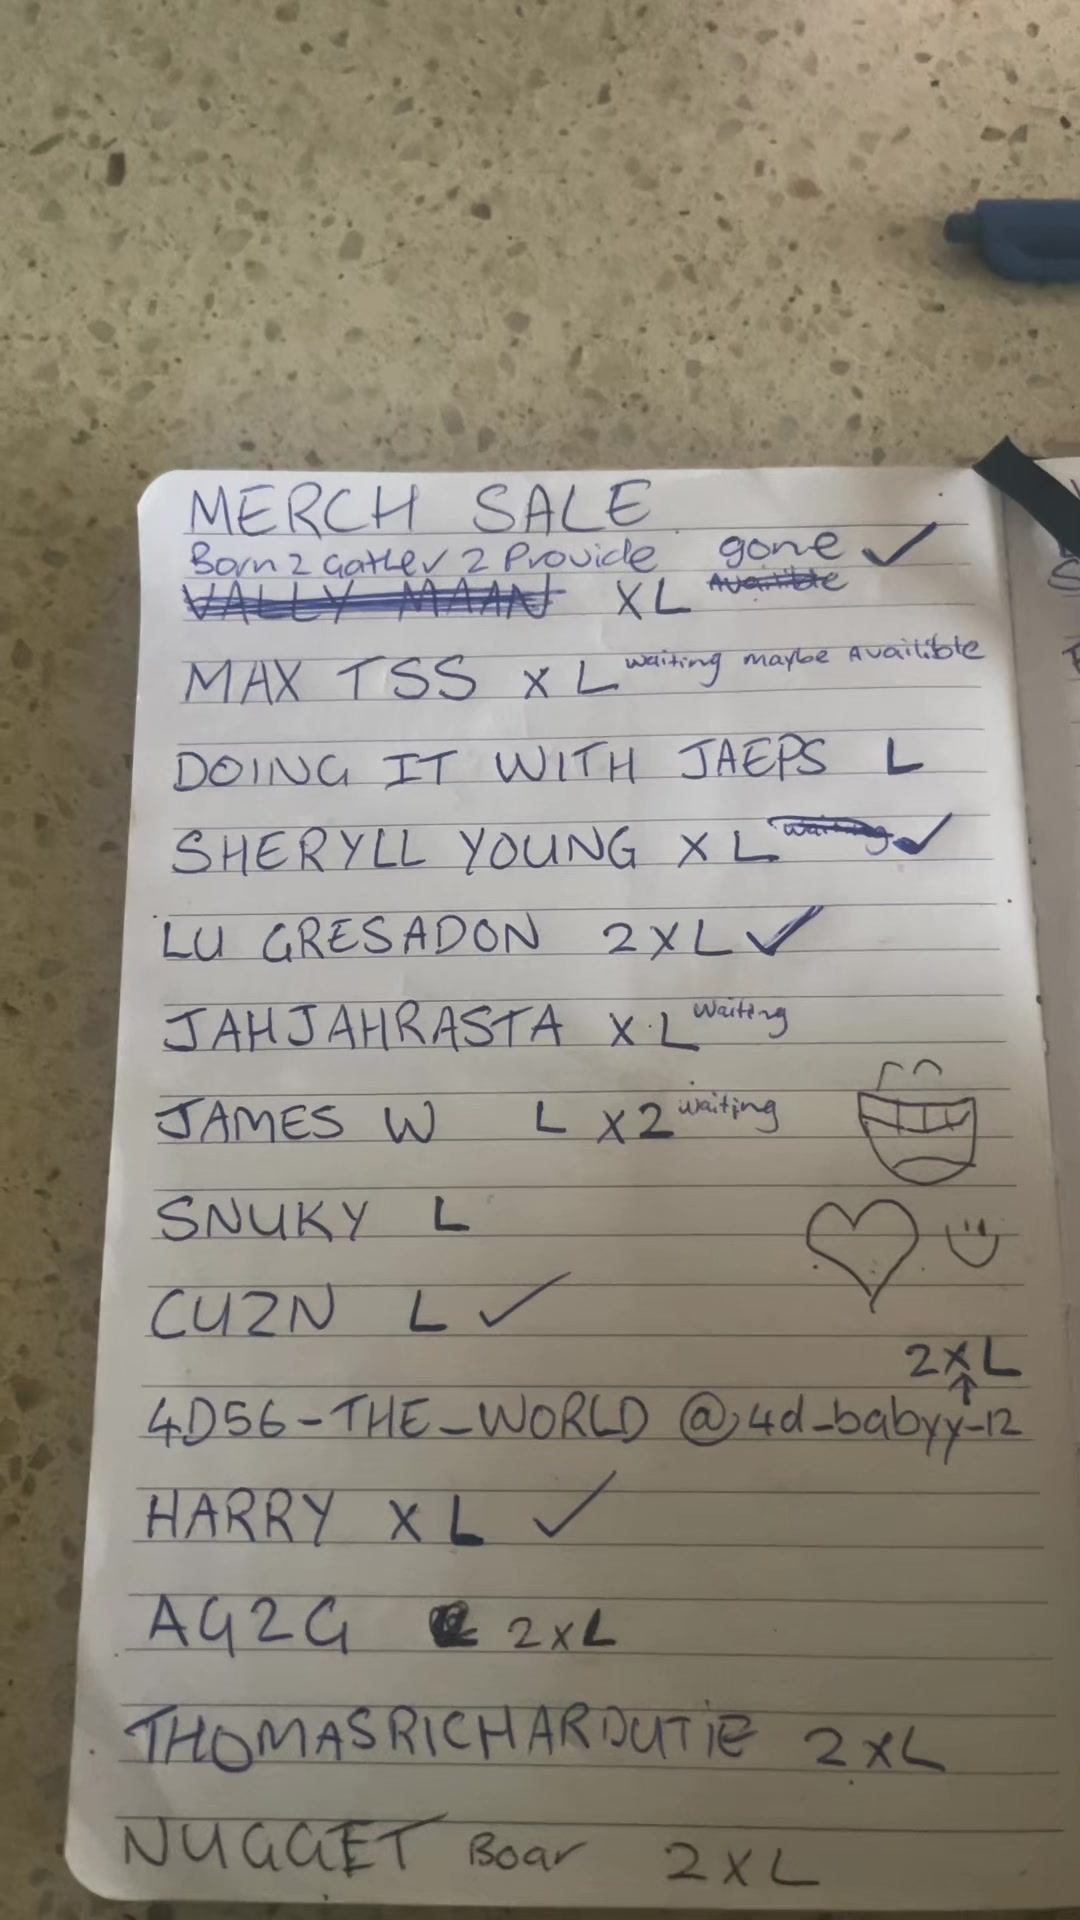 MERCH SALE
Born 2 Gather 2 Provide gone ✓
VALLY MAAN XL Availible
MAX TSS XL waiting maybe Availible
DOING IT WITH JAEPS L
SHERYLL YOUNG XL waiting ✓
LU GRESADON 2XL ✓
JAHJAHRASTA XL waiting
JAMES W L X2 waiting
SNUKY L
CUZN L ✓
2XL
4D56-THE_WORLD @4d_babyy-12
HARRY XL ✓
AG2G 2XL
THOMASRICHARDUTIE 2XL
NUGGET Boar 2XL